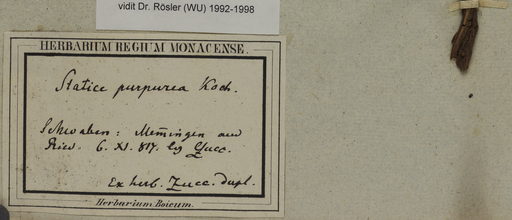 vidit Dr. Rösler (WU) 1992-1998
HERBARIUM REGIUM MONACENSE.
Statice purpurea Koch.
Schwaben: Mem̄ingen am
Ried. 6. XI. 817. leg Zucc.
Ex herb. Zucc. dupl.
Herbarium Boicum.